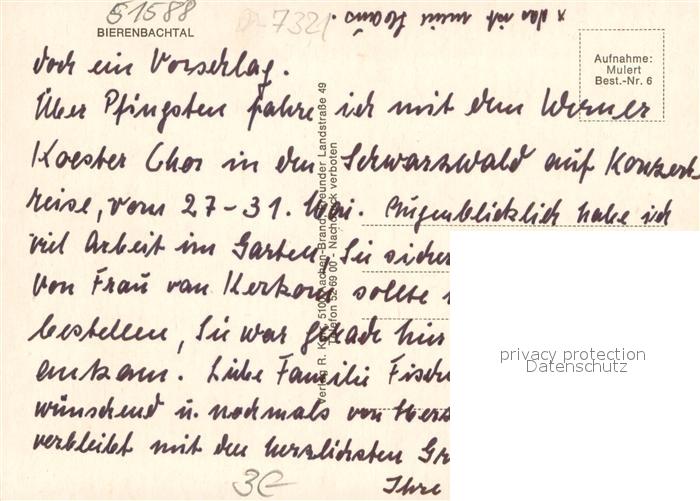 51588
BIERENBACHTAL
7321
x das ist mein Haus.
Aufnahme:
Mulert
Best.-Nr. 6
doch ein Vorschlag.
Über Pfingsten fahre ich mit dem Werner
Koester Chor in den Schwarzwald auf Konzert
reise, vom 27-31. Mai. Augenblicklich habe ich
viel Arbeit im Garten, Sie sicher
von Frau van Kerkom sollte
bestellen, Sie war gerade hier
ankam. Liebe Familie Fische
wünschend u. nochmals von Herz
verbleibt mit den herzlichsten Gr
Ihre
3€
Verlag R. 5100 Aachen-Brand, Freunder Landstraße 49
Telefon 52 69 00 - Nachdruck verboten
privacy protection
Datenschutz